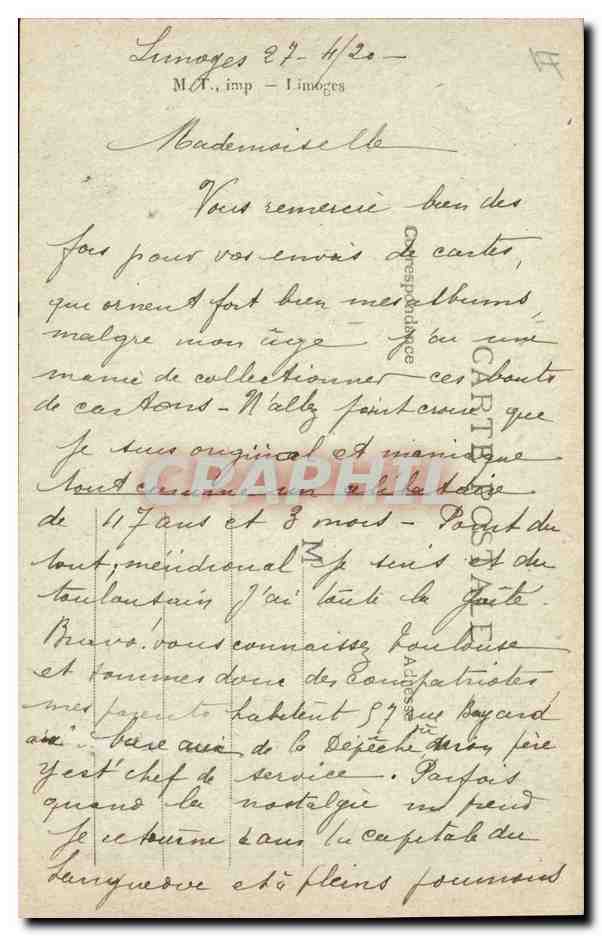 Limoges 27-4/20-
M. T., imp – Limoges
Mademoiselle
Vous remercie bien des
fois pour vos envois de cartes,
qui ornent fort bien mes albums,
malgre mon âge j'ai une
manie de collectionner ces bouts
de cartons - N'allez point croire que
je suis original et maniaque
tout comme un célibataire
de 47 ans et 3 mois - Point du
tout, méridional je suis et du
toulousain j'ai toute la gaité.
Bravo! vous connaissez Toulouse
et sommes donc des compatriotes,
mes parents habitent 57 rue Bayard
de la Dépêche mon père
y est chef de service. Parfois
quand la nostalgie me prend
je retourne dans la capitale du
Languedoc et à pleins poumons
Correspondance
CARTE POSTALE
M
Adresse
CPAPHIL